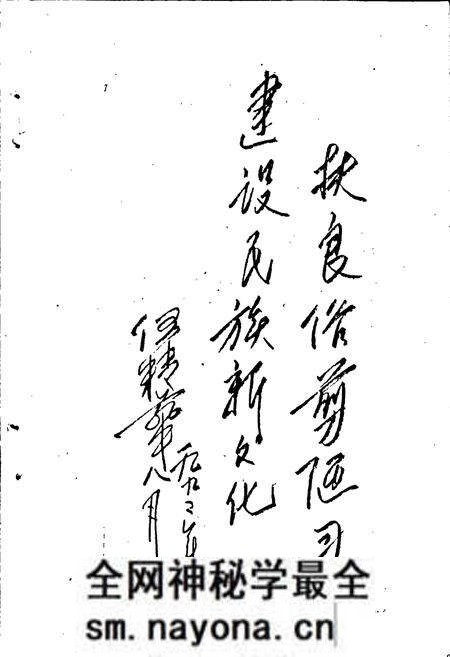 扶良俗剪陋习
建设民族新文化
伍精华
一九九二年
八月
全网神秘学最全
sm.nayona.cn